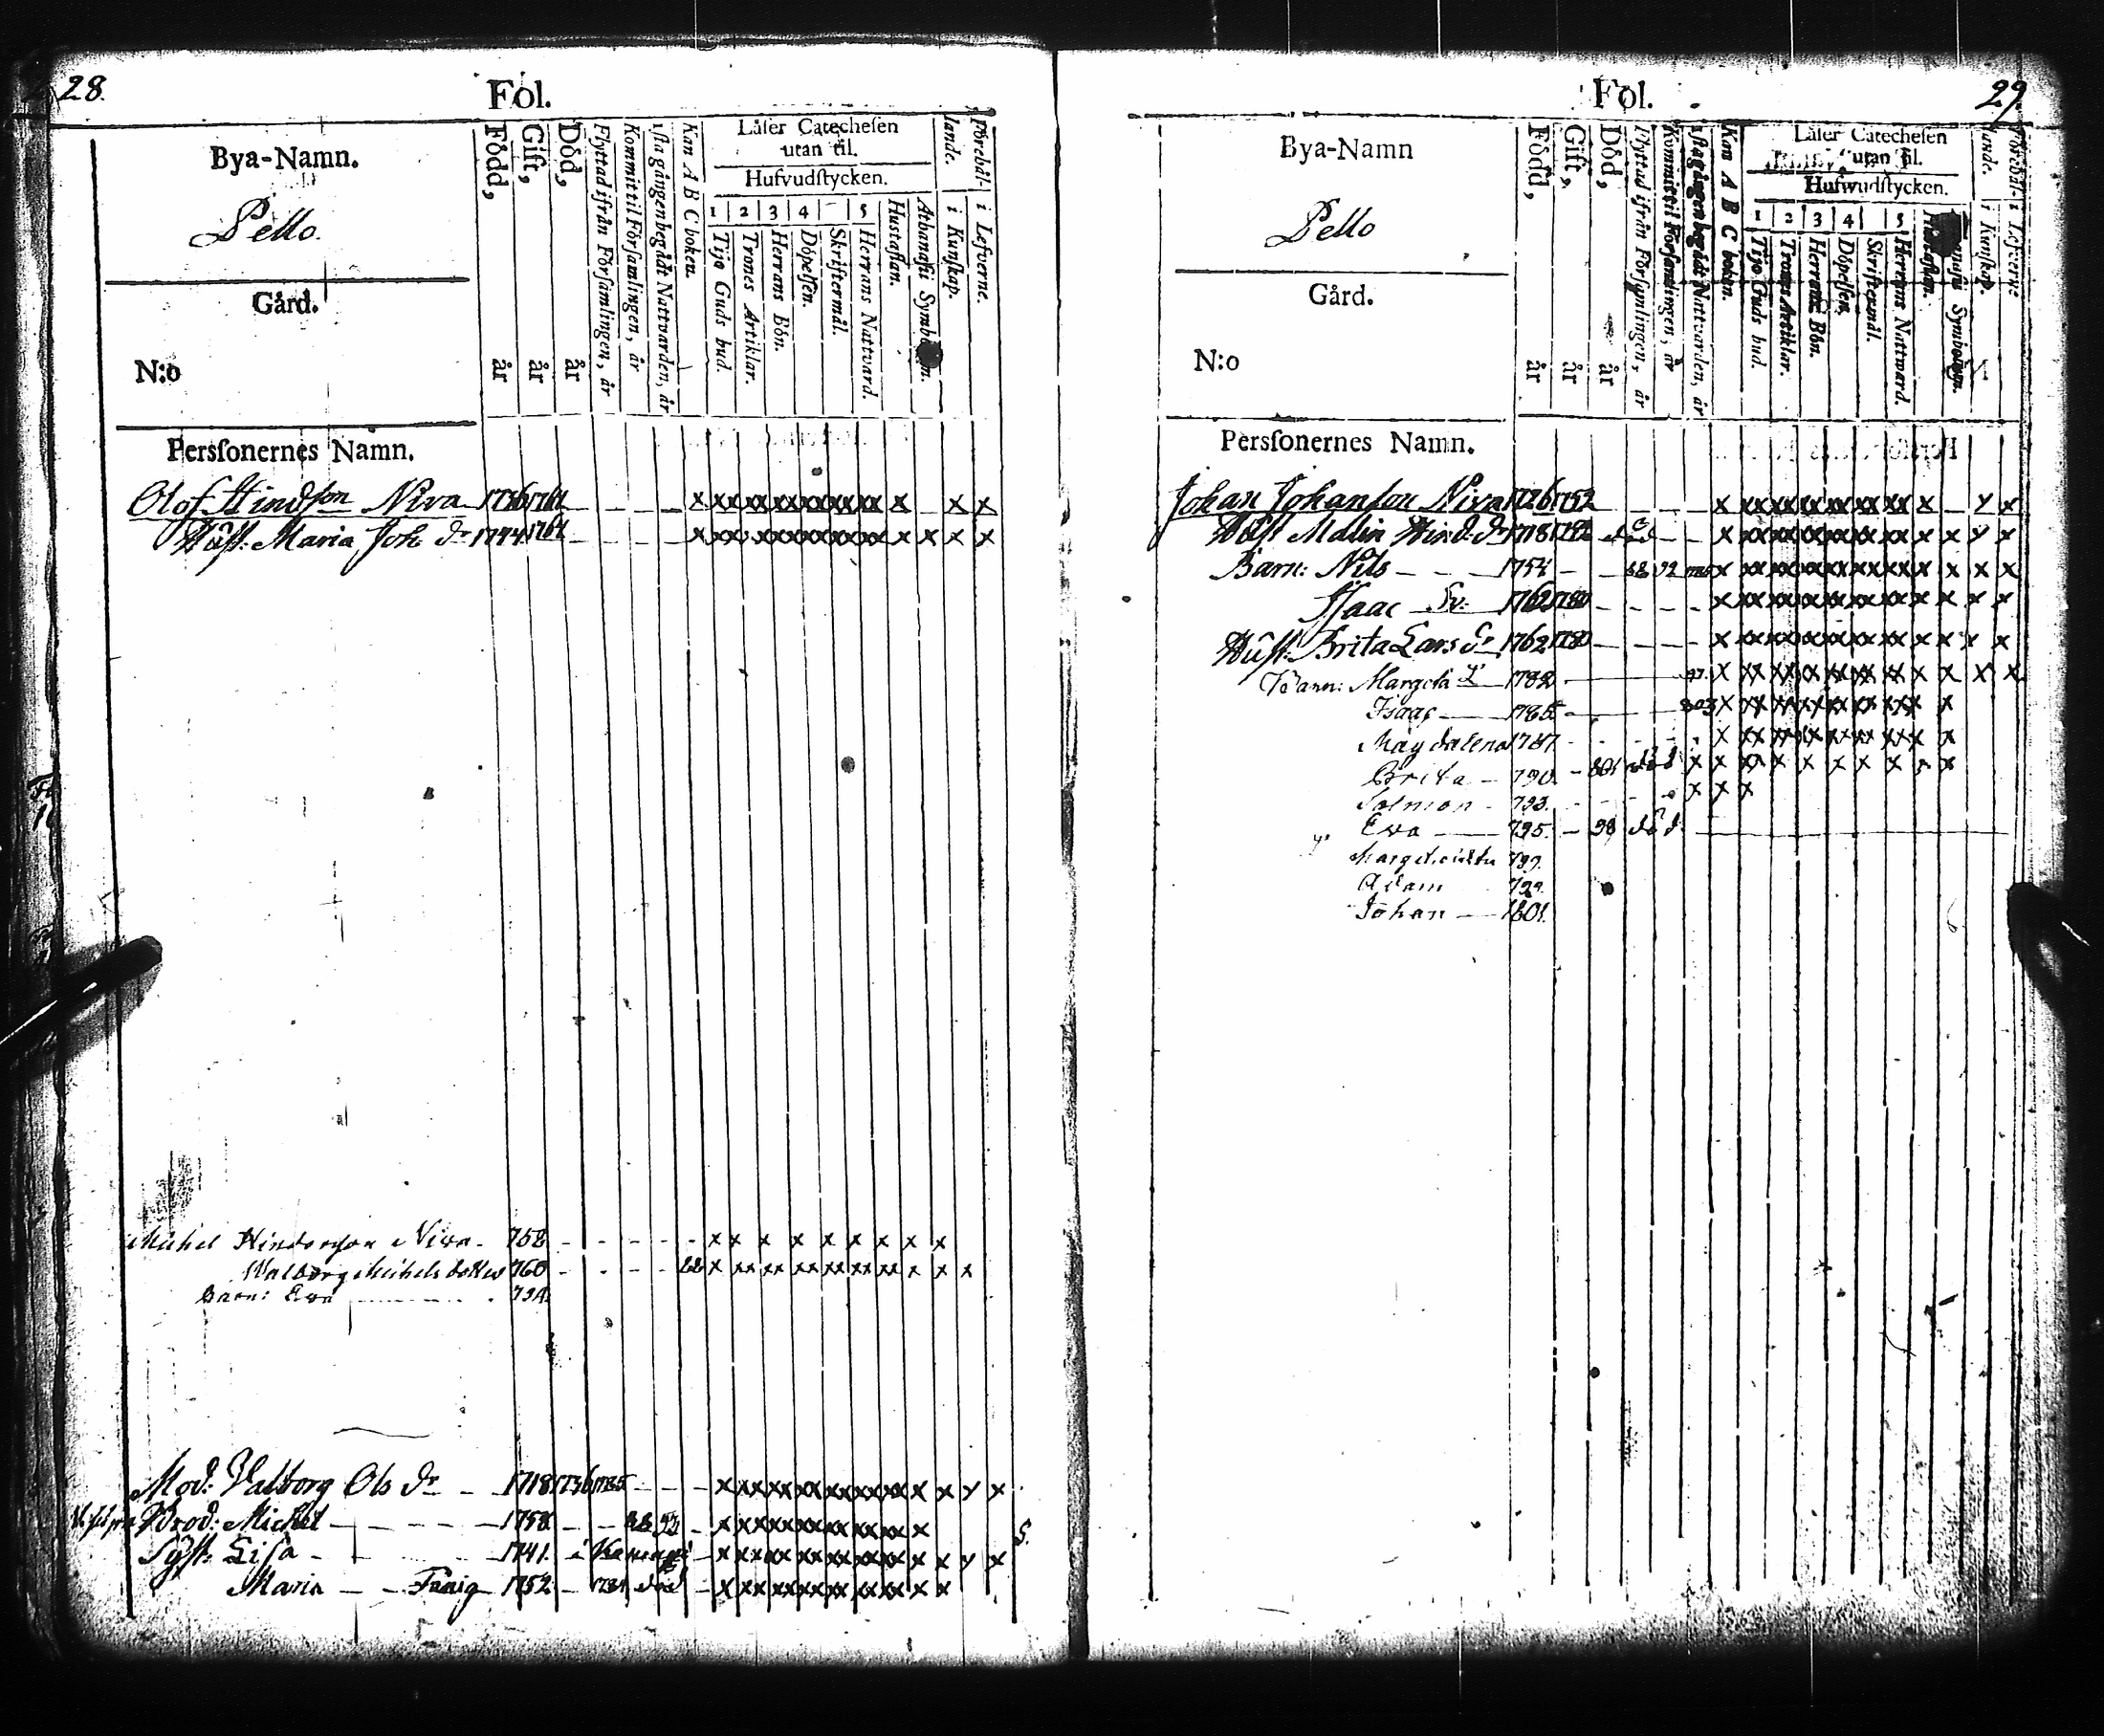 28.
Fol.
Bya-Namn.
Pello.
Gård.
N:o
Född, år
Gift, år
Död, år
Flyttad ifrån Församlingen, år
Kommit til Församlingen, år
1sta gången begådt Nattvarden, år
Kan A B C boken.
Läser Catechesen
utan til.
Hufvudstycken.
1 2 3 4 5
Tijo Guds bud.
Trones Artiklar.
Herrans Bön.
Döpelsen.
Skriftermål.
Herrans Nattvard.
Hustaflan.
Athanasii Symbolum.
Förehål-
lande.
i Kunskap.
i Lefverne.
Perssonernes Namn.
Olof Hindsson Niva
Hust: Maria Joh dr 1744 1764
Michel Hindersson Niva 758
Walborg Michels dotter 760
Barn: Eva
Mod: Valborg Ols dr 1718 1736 1785
Brod: Michel 1758 88
Syst: Lisa 1741
Maria Fånig 1752 död
29.
Fol.
Bya-Namn
Pello
Gård.
N:o
Född, år
Gift, år
Död, år
Flyttad ifrån Församlingen, år
Kommit til Församlingen, år
1sta gången begådt Nattvarden, år
Kan A B C boken.
Läser Catechesen
utan til.
Hufwudstycken.
1 2 3 4 5
Tijo Guds bud.
Trones Artiklar.
Herrans Bön.
Döpelsen.
Skriftermål.
Herrans Nattvard.
Hustaflan.
Symbolum.
i Kunskap.
i Lefverne
Perssonernes Namn.
Johan Johansson Niva 1726 1752
Hust Malin Hind. dr 1718 död
Barn: Nils 1754 88 92
Isaac 1762 1780
Hust: Brita Lars dr 1762 1780
Barn: Margeta 1782 97.
Isaac 1785 803
Magdalena 1787
Brita 790. 801 död
Salmon 793.
Eva 795. 98 död
Adam 799.
Johan 1801.